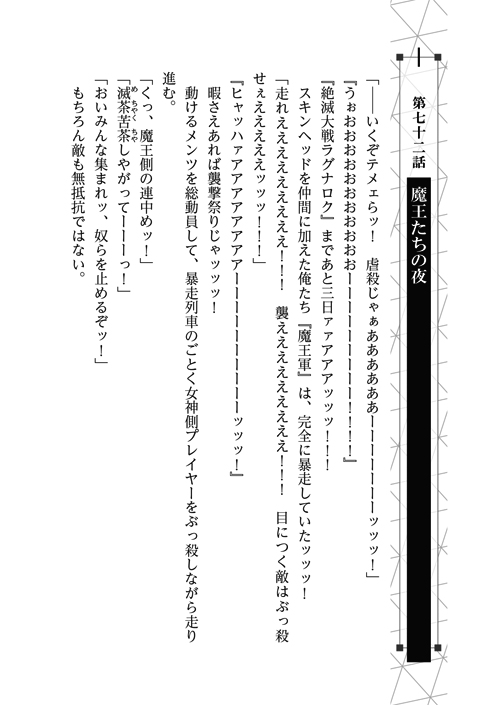 第七十二話　魔王たちの夜
「――いくぞテメェらッ！　虐殺じゃぁああああああーーーーーーーッッッ！」
『うぉおおおおおおおおおおおおーーーーーーーーー！！！！』
『絶滅大戦ラグナロク』まであと三日ァァアアアッッッ！！！
　スキンヘッドを仲間に加えた俺たち『魔王軍』は、完全に暴走していたッッッ！
「走れえええええええええええ！！！　襲えええええええええええ！！！　目につく敵はぶっ殺
せぇえええええッッッ！！！」
『ヒャッハァアアアアアアアアアーーーーーーーーーーーッッッ！』
　暇さえあれば襲撃祭りじゃッッッ！
　動けるメンツを総動員して、暴走列車のごとく女神側プレイヤーをぶっ殺しながら走り
進む。
「くっ、魔王側の連中めッ！」
「滅茶苦茶しやがってーーーっ！」
「おいみんな集まれッ、奴らを止めるぞッ！」
　もちろん敵も無抵抗ではない。